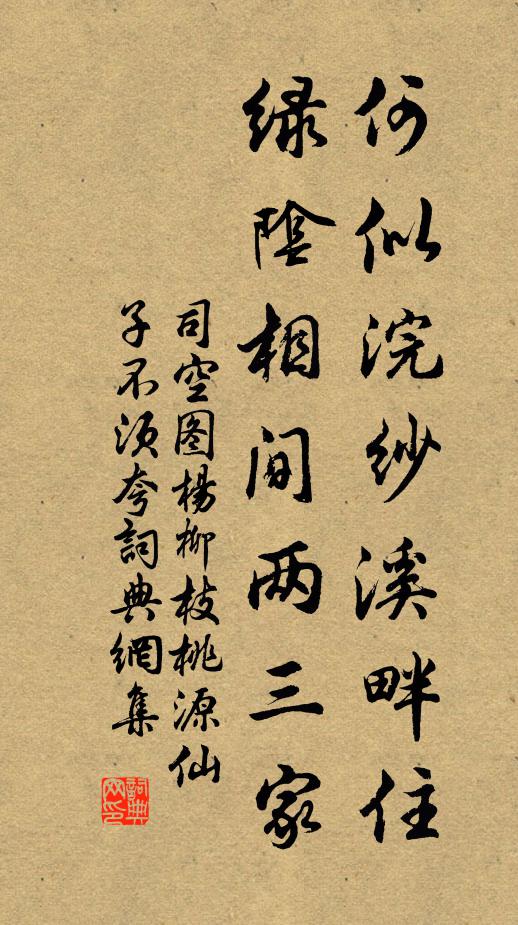 何似浣纱溪畔住
绿陰相间两三家
司空图楊柳枝桃源仙
子不须夸詞典網集
詞典
网印